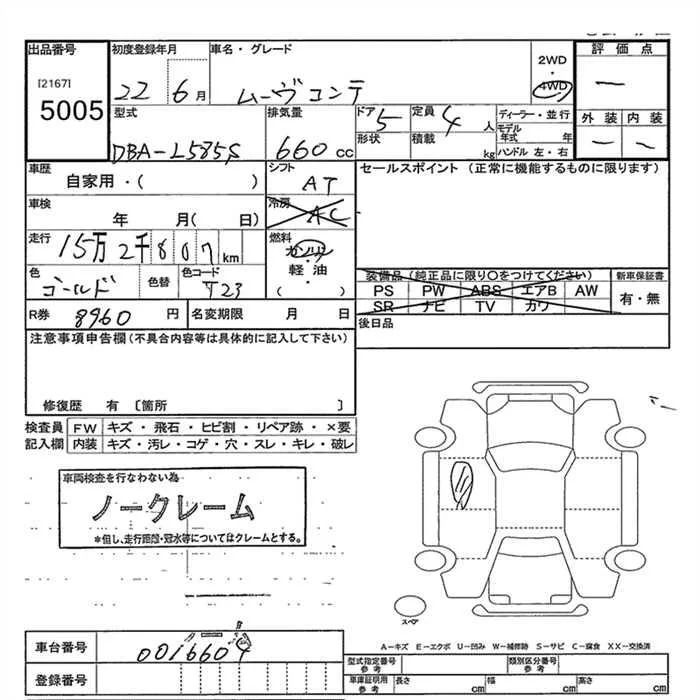 出品番号
[2167]
5005
初度登録年月
22 6月
車名・グレード
ムーヴコンテ
2WD
・
4WD
評価点
—
型式
DBA-L585S
排気量
660 cc
ドア 5
形状
定員 4 人
積載 kg
ディーラー・並行
モデル年式 年
ハンドル 左・右
外装 内装
— —
車歴
自家用・( )
シフト
AT
セールスポイント (正常に機能するものに限ります)
車検
年 月( 日)
冷房
AC
走行
15万2千807 km
燃料
ガソリン
・
軽油
( )
色
ゴールド
色替
色コード
T23
装備品 (純正品に限り○をつけてください)
PS PW ABS エアB AW
SR ナビ TV カワ
新車保証書
有・無
R券 8960 円
名変期限 月 日
後日品
注意事項申告欄(不具合内容等は具体的に記入して下さい)
修復歴 有 〔箇所 〕
検査員記入欄
FW キズ・飛石・ヒビ割・リペア跡・×要
内装 キズ・汚レ・コゲ・穴・スレ・キレ・破レ
車両検査を行なわない為
ノークレーム
*但し、走行距離・冠水等についてはクレームとする。
スペア
A-キズ E-エクボ U-凹み W-補修跡 S-サビ C-腐食 XX-交換済
車台番号
0016604
型式指定番号参考
類別区分番号参考
登録番号
車庫証明用参考
長さ cm
幅 cm
高さ cm